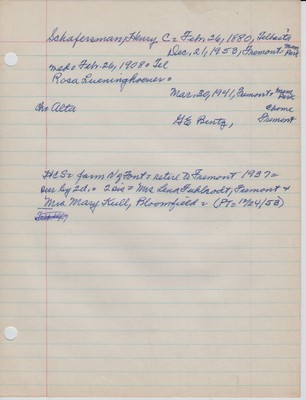 Schafersman, Henry C = Feb. 26, 1880,
Dec, 21, 1953, Fremont = Mem Park
md = Feb. 26, 1908 =
Rosa Lueninghoener =
Mar. 20, 1941, Fremont = Mem Park
Ch: Alta
Fremont
GE Bentz,
HCS = farm N of Font = retire to Fremont 1937 =
sur by 2d. = 2 sis = Mrs Lena Fuhlrodt, Fremont &
Mrs Mary Kull, Bloomfield = (FT = 12/24/53)